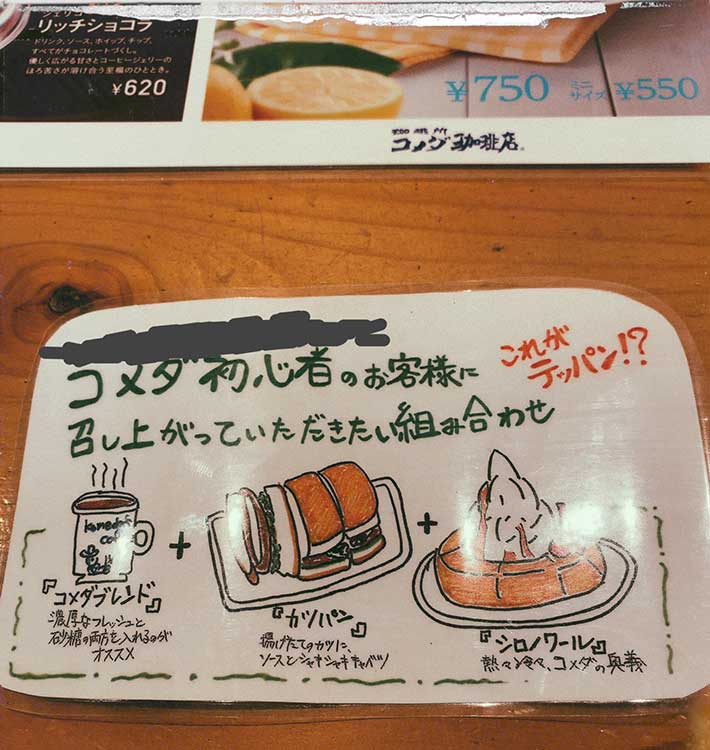 リッチショコラ
ドリンク、ソース、ホイップ、チップ、
すべてがチョコレートづくし。
優しく広がる甘さとコーヒージェリーの
ほろ苦さが溶け合う至福のひととき。
¥620
¥750 ミニサイズ ¥550
珈琲店
コメダ初心者のお客様に
召し上がっていただきたい組み合わせ
これが
テッパン!?
Komeda's
『コメダブレンド』
濃厚なフレッシュと
砂糖の両方を入れるのが
オススメ
+
『カツパン』
揚げたてのカツに、
ソースとシャキシャキキャベツ
+
『シロノワール』
熱々冷々、コメダの奥義